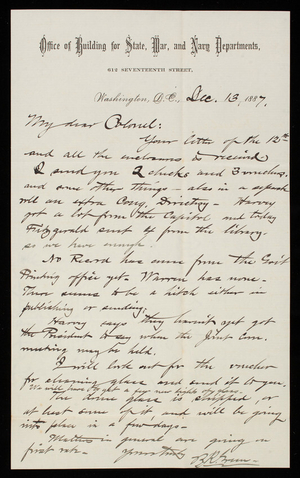 Office of Building for State, War, and Navy Departments,
612 SEVENTEENTH STREET,
Washington, D.C., Dec. 13, 1887.
My dear Colonel:
Your letter of the 12th
and all the enclosures is received.
I send you 2 checks and 3 vouchers,
and some other things - also in a separate
roll an extra Cong. Directory - Harvey
got a lot from the Capitol and today
Fitzgerald sent 4 from the library.
so we have enough.
No Record has come from the Gov't
Printing office yet - Warren has none.
There seems to be a hitch either in
publishing or sending.
Harvey says they haven't yet got
the President to say when the Joint Com.
meeting may be held.
I will look out for the voucher
for cleaning glass and send it to you.
We will have to get a few new lights of glass.
The dome glass is shipped, or
at least some of it, and will be going
into place in a few days -
Matters in general are going on
first rate. Yours truly